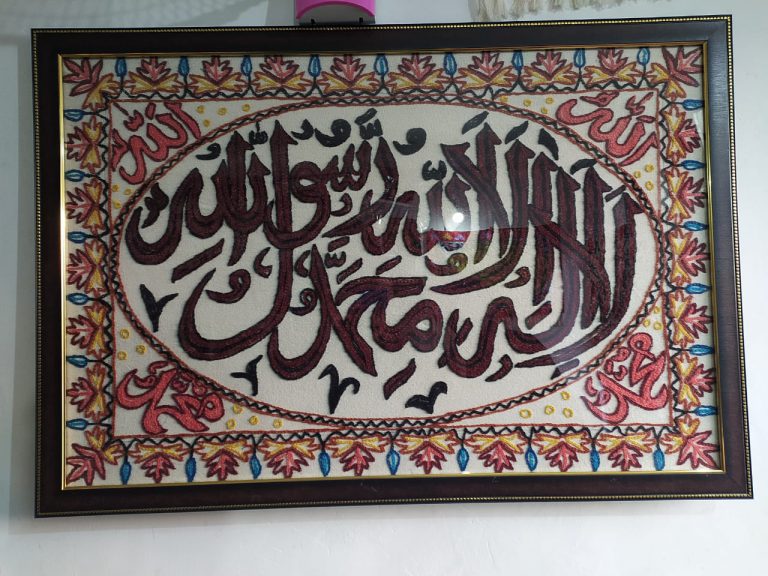 الله
الله
لا إله إلا الله محمد رسول الله
محمد
محمد